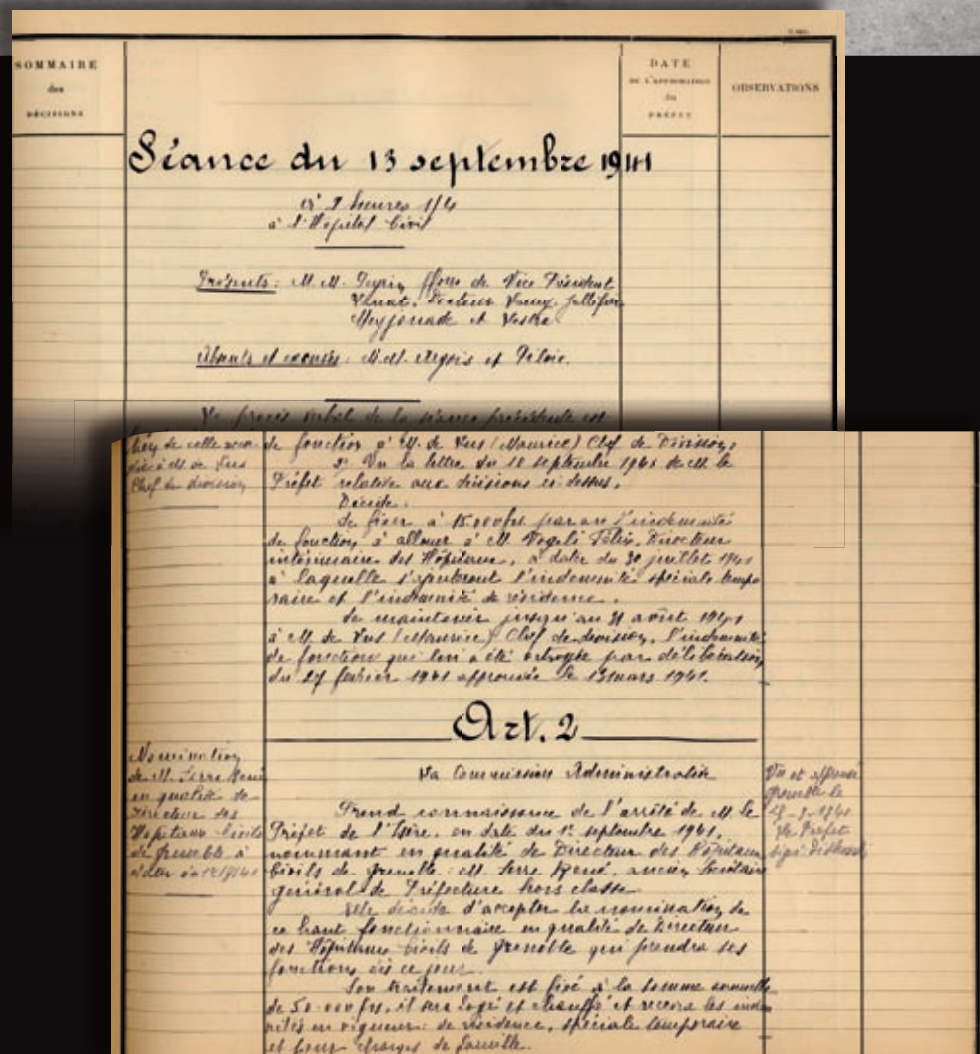 SOMMAIRE
des
DÉCISIONS
DATE
DE L'APPROBATION
du
PRÉFET
OBSERVATIONS
Séance du 13 septembre 1941
à heures 1/4
à l'Hôpital Civil
Présents: M.M. de Vice Président
Docteur
et
Absents et excusés: M.M. et
Le procès verbal de la séance précédente est
de celle
à M. de Vus
Chef de division
de fonction à M. de Vus (Maurice) Chef de Division,
2° Vu la lettre du 10 septembre 1941 de M. le
Préfet relative aux décisions ci-dessus,
Décide:
de fixer à 15.000 frs par an l'indemnité
de fonction à allouer à M. Vogeli Félix, Directeur
intérimaire des Hôpitaux, à dater du 30 juillet 1941
à laquelle s'ajouteront l'indemnité spéciale tempo
raire et l'indemnité de résidence.
de maintenir jusqu'au 31 août 1941
à M. de Vus (Maurice) Chef de division, l'indemnité
de fonction qui lui a été octroyée par délibération
du 27 février 1941 approuvée le 13 mars 1941.
Art. 2
Nomination
de M. Serre René
en qualité de
Directeur des
Hôpitaux Civils
de Grenoble à
dater du
La Commission Administrative
Prend connaissance de l'arrêté de M. le
Préfet de l'Isère, en date du 1er septembre 1941,
nommant en qualité de Directeur des Hôpitaux
Civils de Grenoble: M. Serre René, ancien Secrétaire
général de Préfecture hors classe
Elle décide d'accepter la nomination de
ce haut fonctionnaire en qualité de Directeur
des Hôpitaux Civils de Grenoble qui prendra ses
fonctions dès ce jour.
Son traitement est fixé à la somme annuelle
de 50.000 frs, il sera logé et chauffé et recevra les indem
nités en vigueur: de résidence, spéciale temporaire
et pour charges de famille.
Vu et approuvé
Grenoble le
1941
Le Préfet
signé